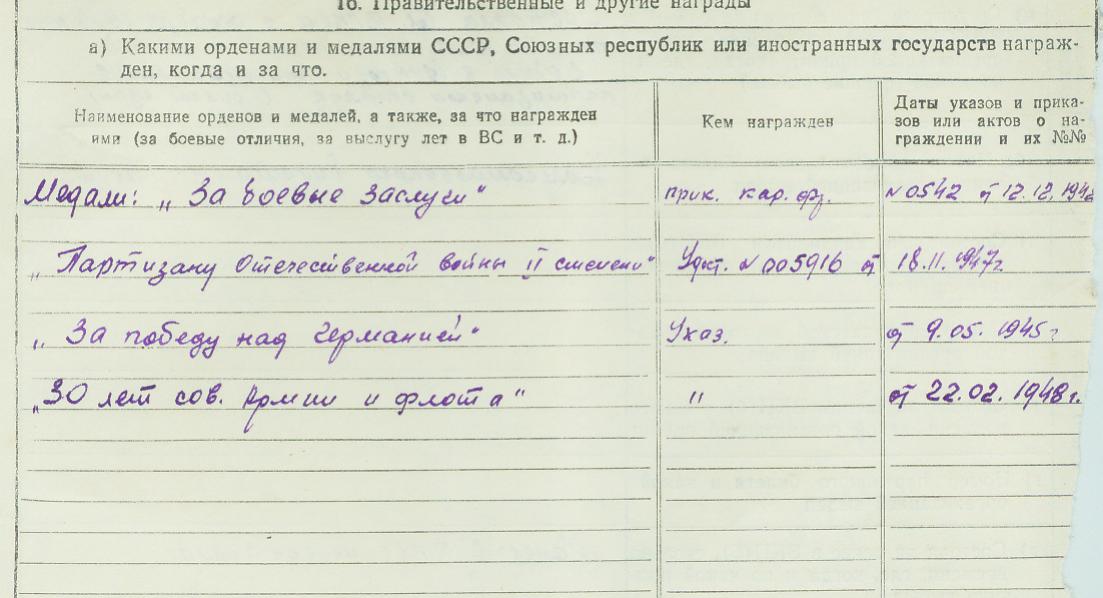 16. Правительственные и другие награды
а) Какими орденами и медалями СССР, Союзных республик или иностранных государств награж-
ден, когда и за что.
Наименование орденов и медалей, а также, за что награжден
ими (за боевые отличия, за выслугу лет в ВС и т. д.)
Кем награжден
Даты указов и прика-
зов или актов о на-
граждении и их №№
Медали: „За боевые заслуги" прик. Кар. фр. N 0542 от 12.12.
„Партизану Отечественной войны II степени" Удст. N 005916 от 18.11.1947г.
„За победу над Германией" Указ. от 9.05.1945г
„30 лет сов. Армии и флота" " от 22.02.1948г.